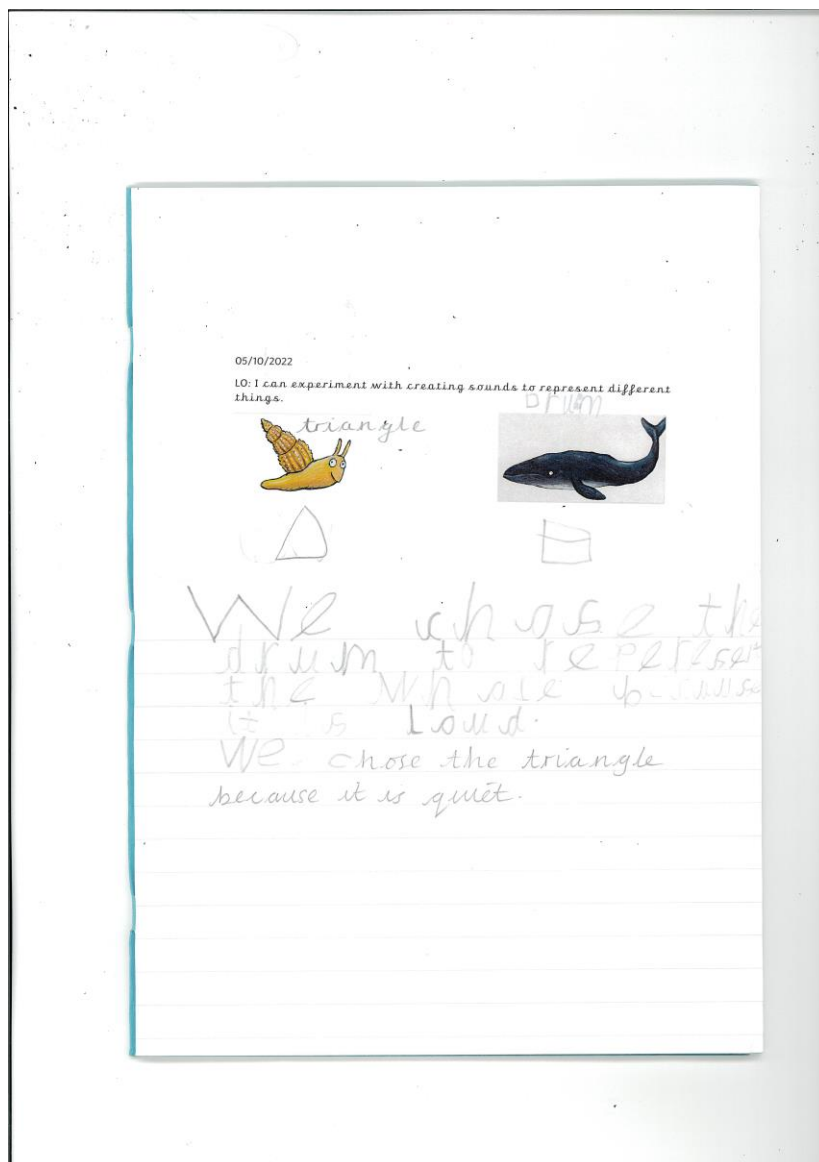 05/10/2022
LO: I can experiment with creating sounds to represent different
things.
Drum
triangle
We chose the
drum to repereset
the whale b
it is Loud.
We chose the triangle
because it is quiet.